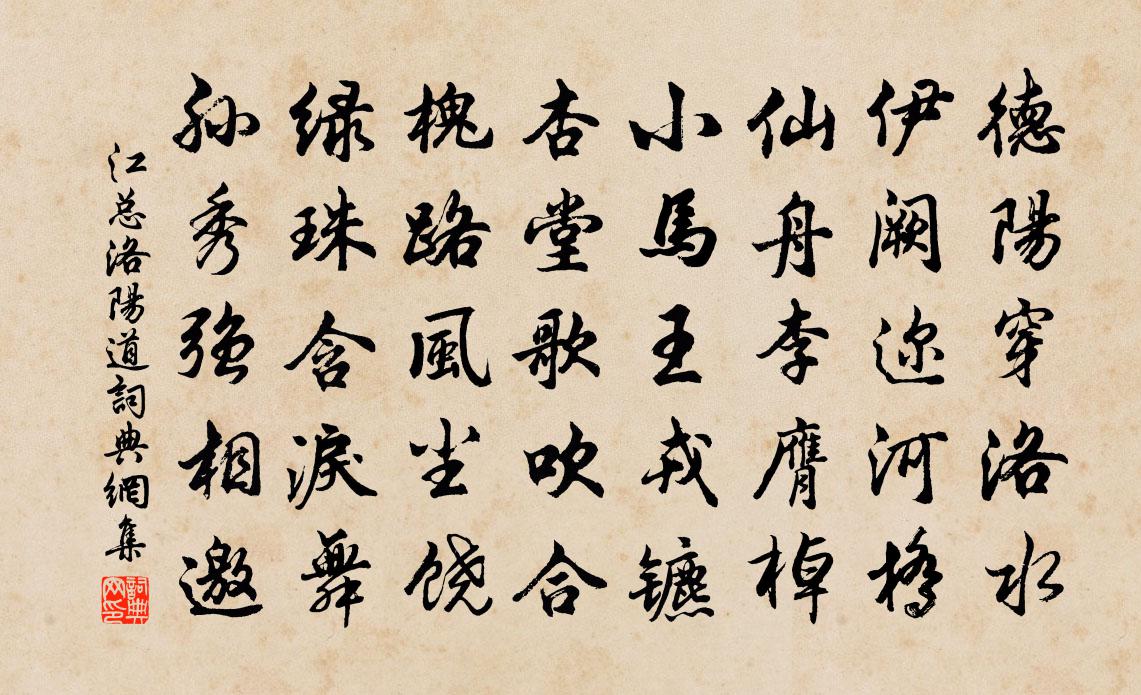 德陽穿洛水
伊阙迩河橋
仙舟李膺棹
小馬王戎镳
杏堂歌吹合
槐路風尘饶
绿珠含淚舞
孙秀强相邀
江总洛陽道詞典網集
詞典网印